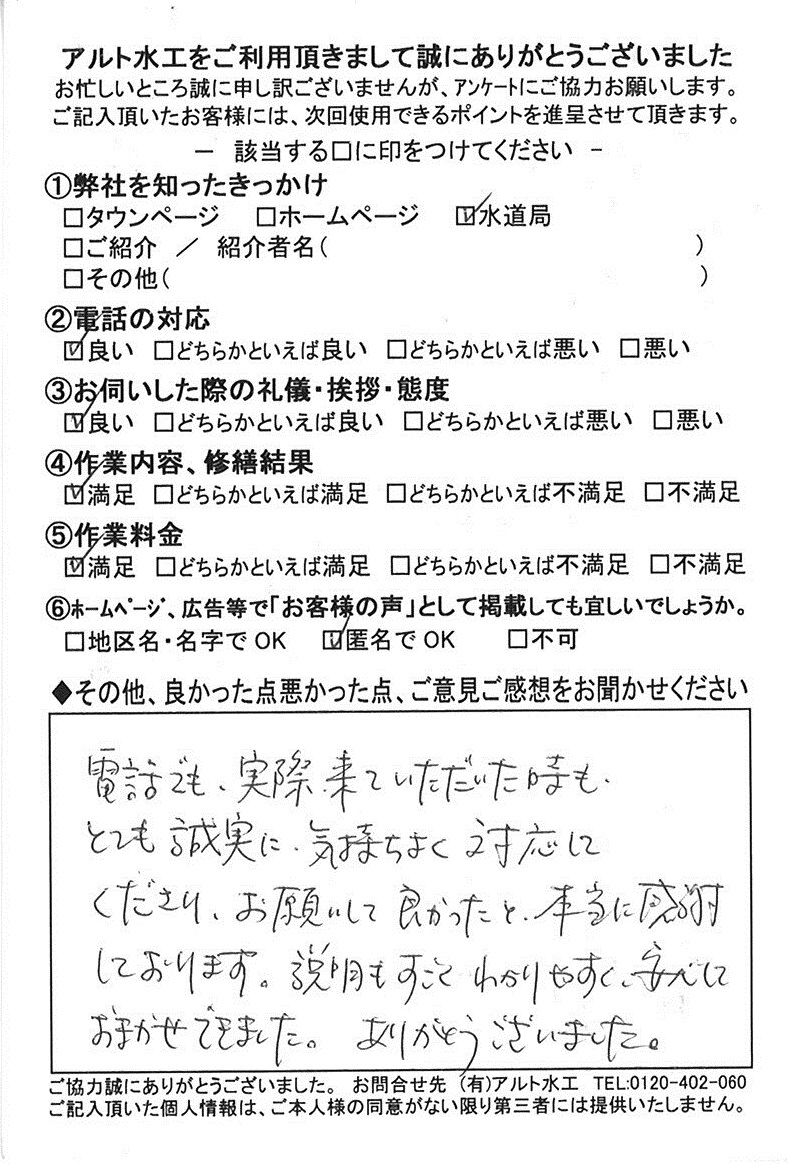 アルト水工をご利用頂きまして誠にありがとうございました
お忙しいところ誠に申し訳ございませんが、アンケートにご協力お願いします。
ご記入頂いたお客様には、次回使用できるポイントを進呈させて頂きます。
― 該当する□に印をつけてください －
①弊社を知ったきっかけ
□タウンページ □ホームページ ☑水道局
□ご紹介 ／ 紹介者名( )
□その他( )
②電話の対応
☑良い □どちらかといえば良い □どちらかといえば悪い □悪い
③お伺いした際の礼儀・挨拶・態度
☑良い □どちらかといえば良い □どちらかといえば悪い □悪い
④作業内容、修繕結果
☑満足 □どちらかといえば満足 □どちらかといえば不満足 □不満足
⑤作業料金
☑満足 □どちらかといえば満足 □どちらかといえば不満足 □不満足
⑥ホームページ、広告等で「お客様の声」として掲載しても宜しいでしょうか。
□地区名・名字でOK ☑匿名でOK □不可
◆その他、良かった点悪かった点、ご意見ご感想をお聞かせください
電話でも、実際来ていただいた時も、
とても誠実に、気持ちよく対応して
くださり、お願いして良かったと、本当に感謝
しております。説明もすごくわかりやすく、安心して
おまかせできました。ありがとうございました。
ご協力誠にありがとうございました。 お問合せ先 (有)アルト水工 TEL:0120-402-060
ご記入頂いた個人情報は、ご本人様の同意がない限り第三者には提供いたしません。